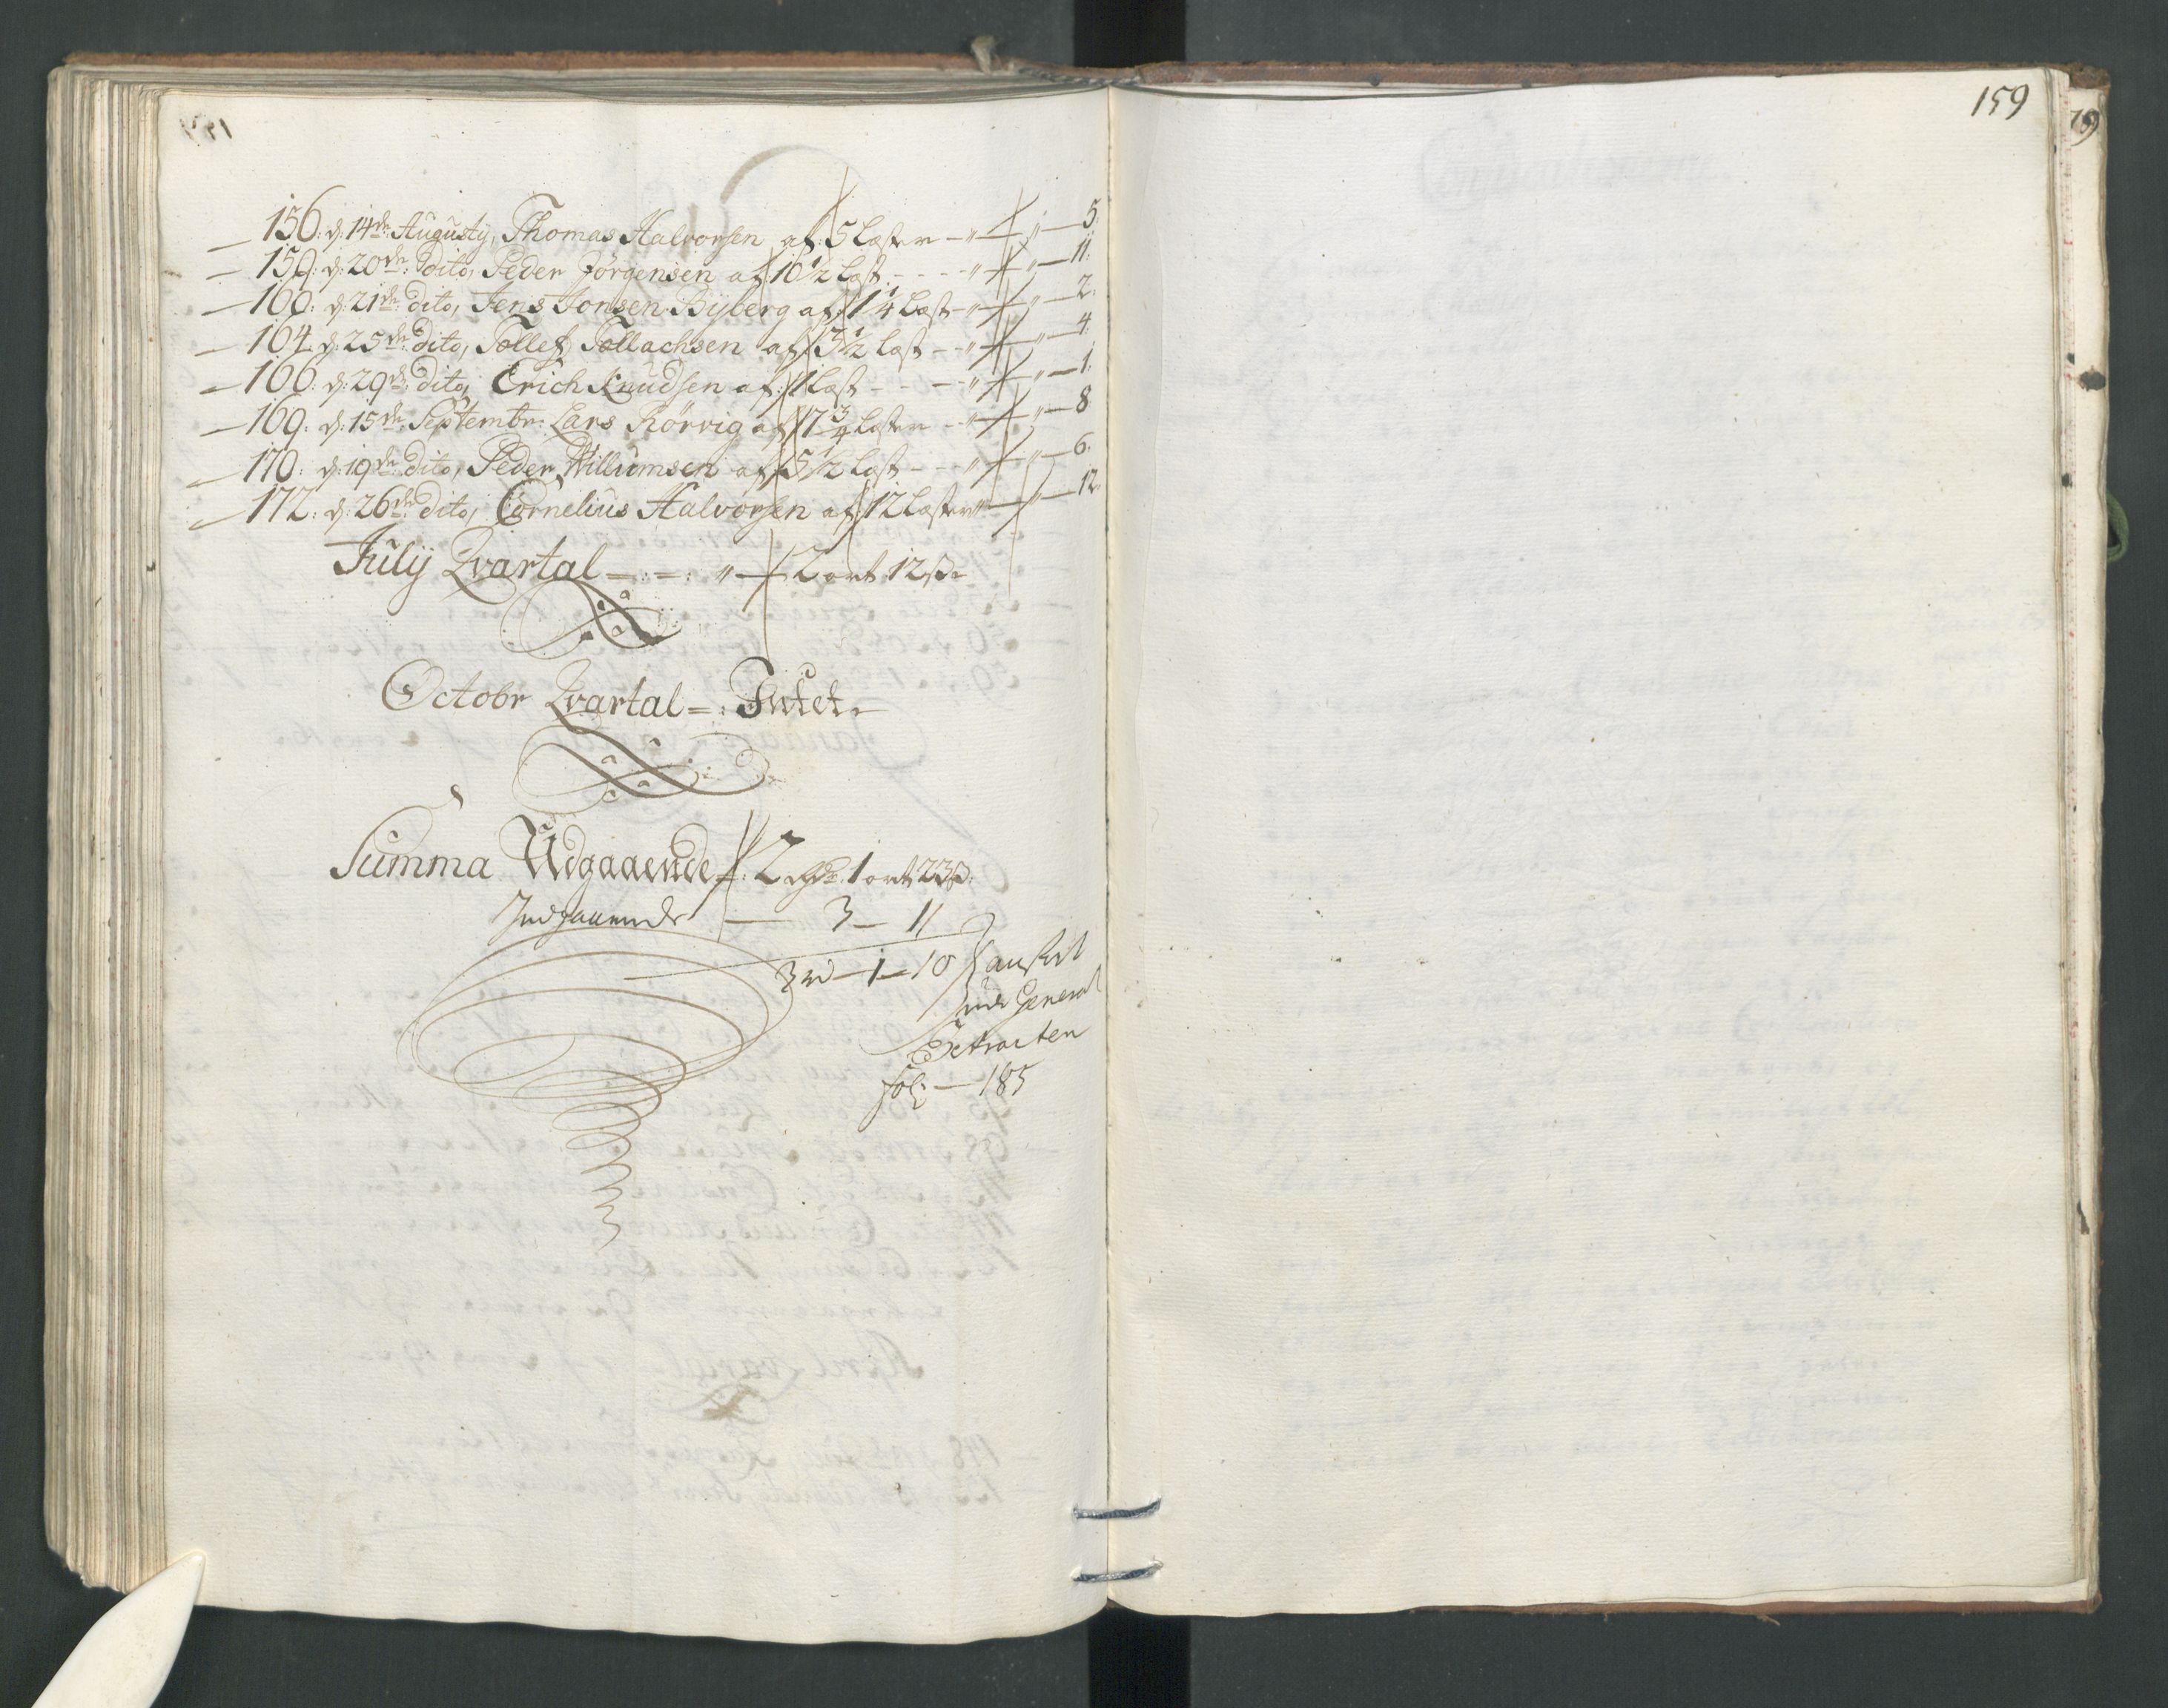 — 156: d: 14de Augusty, Thomas Halvorsen af 5 Læster — „ — „ — 5:
— 159: d: 20de: dito, Peder Jörgensen af 10 1/2 Læst - - - - „ — „ — 11:
— 160: d: 21de: dito, Jens Jonsen Byberg af 1 1/4 Læst — „ — „ — 2:
— 164: d: 25de: dito, Tollef Tollachsen af 3 1/2 Læst — „ — „ — 4:
— 166: d: 29de: dito, Erich Knudsen af 1 Læst - - — „ — „ — 1:
— 169: d: 15de: Septembr: Lars Körvig af 7 3/4 Læster — „ — „ — 8
— 170: d: 19de: dito, Peder Willumsen af 5 1/2 Læst - - - „ — „ — 6:
— 172: d: 26de: dito, Cornelius Halvorsen af 12 Læster „ — „ — 12:
Julij Qvartal —:—: „ — 2 ort 12 s
Octobr Qvartal —: Intet.
Summa Udgaaende —: 2 rd: 1 ort 23 s:
Indgaaende — 3 — 11
3 rd — 1 — 10 anført
udi General
Extracten
fol: — 185
159